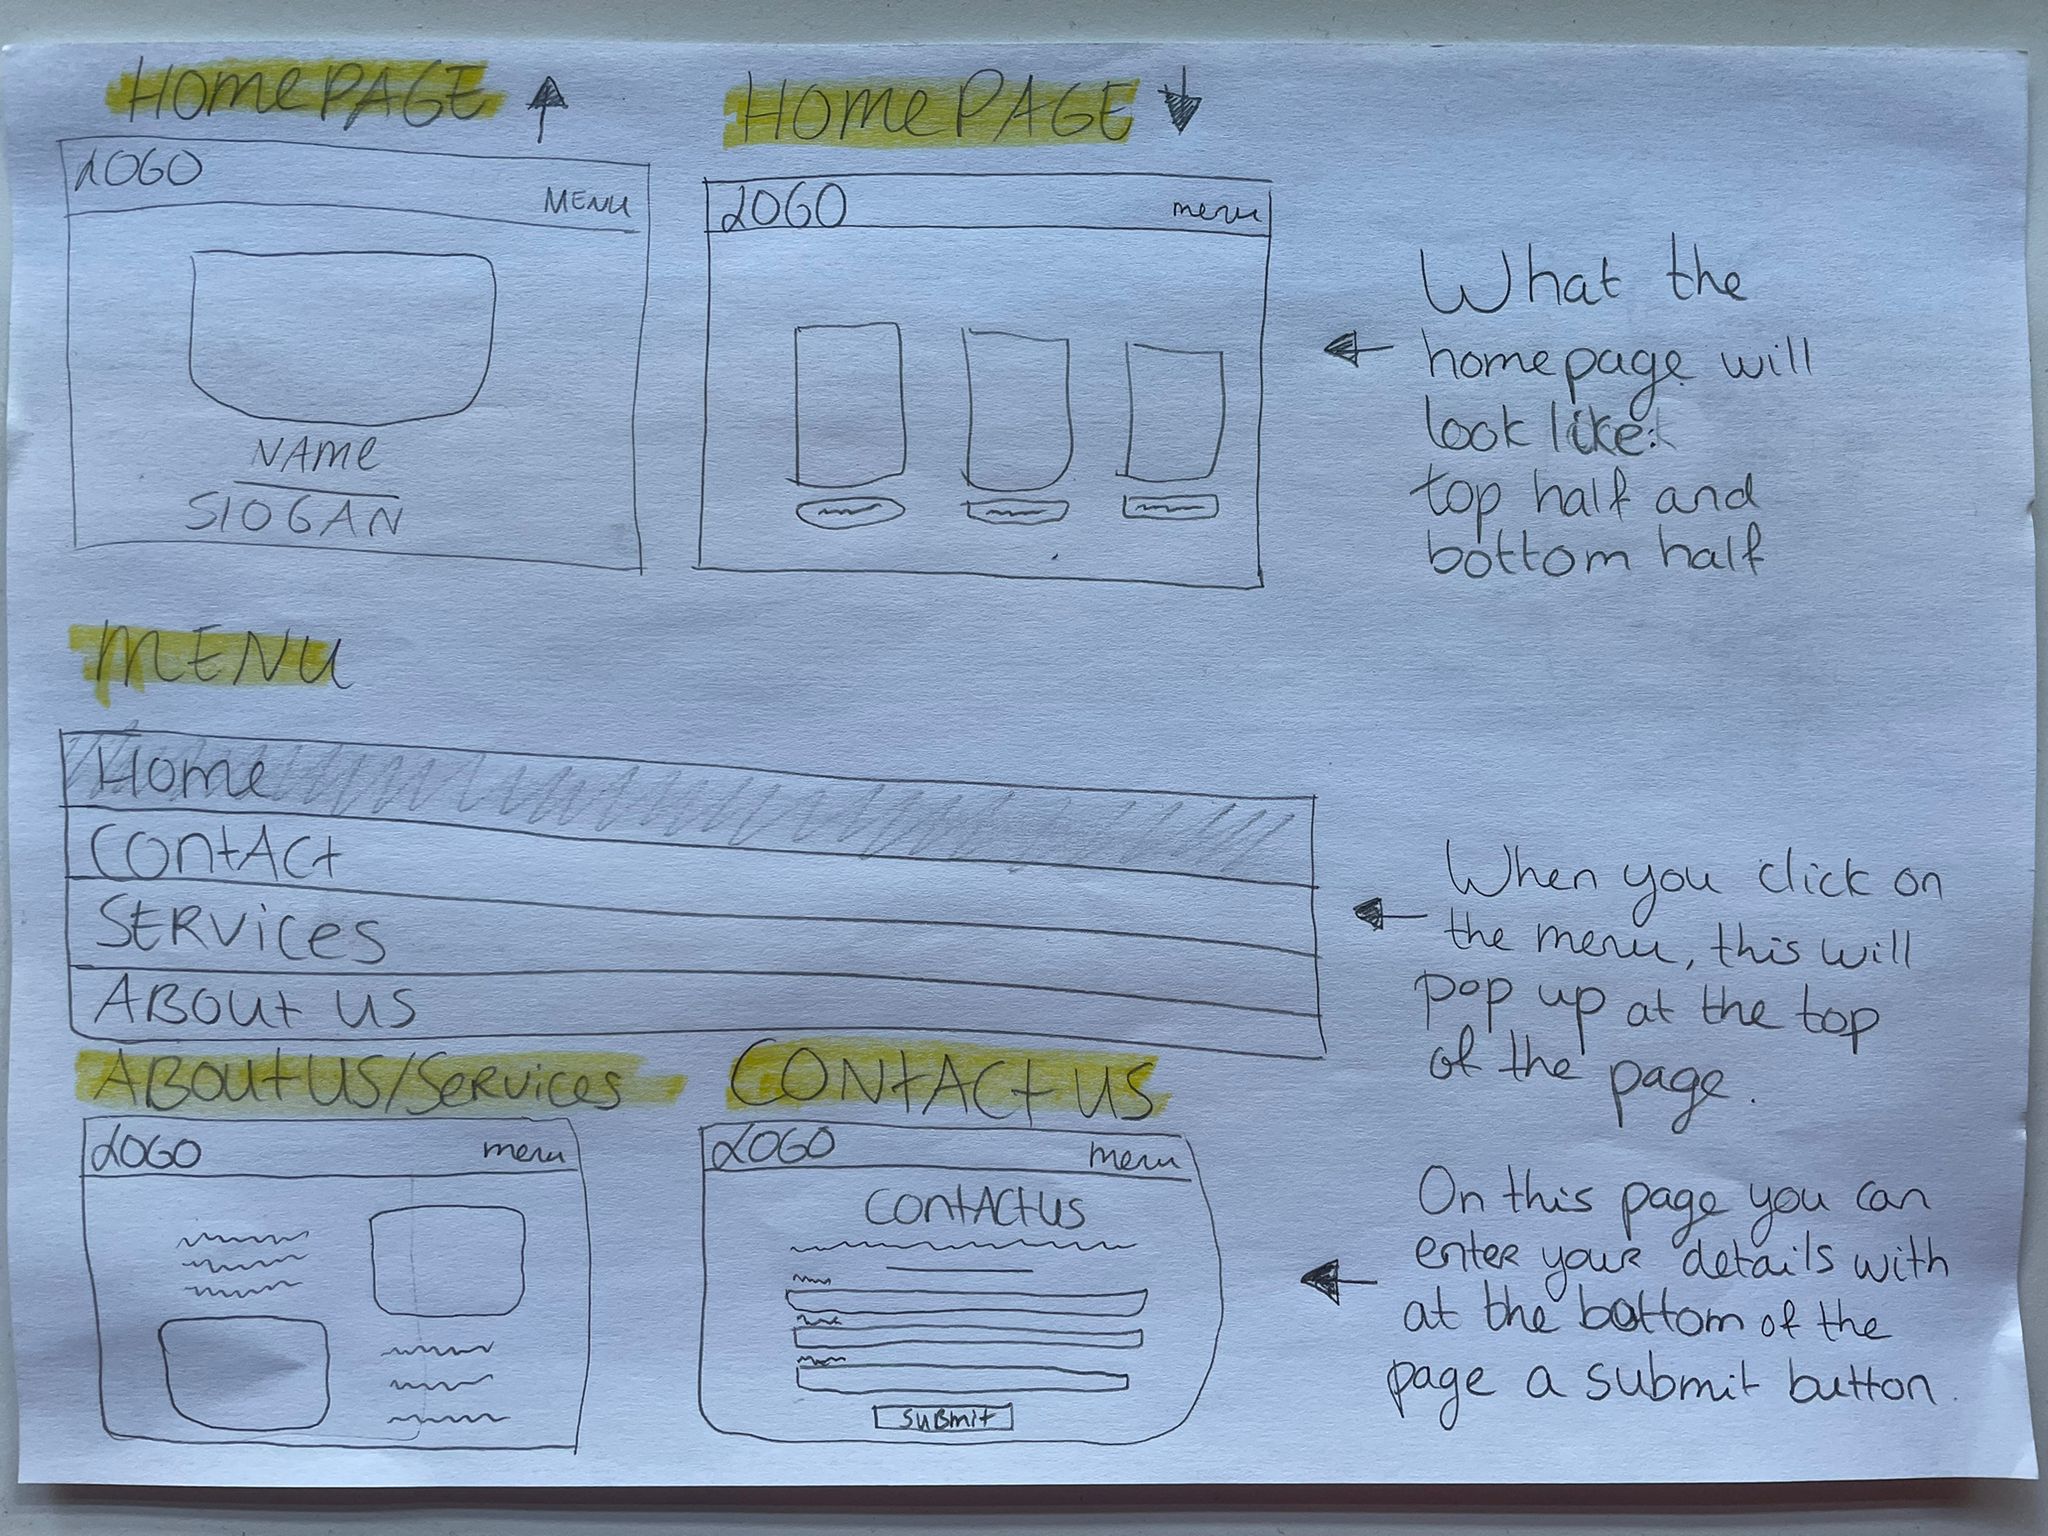 HomePAGE
LOGO
MENU
NAme
SlOGAN
HomePAGE
LOGO
menu
What the
homepage will
look like:
top half and
bottom half
MENU
Home
ContAct
SERvices
ABout us
When you click on
the menu, this will
pop up at the top
of the page.
ABout US/Services
LOGO
menu
CONtACt US
LOGO
menu
ContACt us
SuBmit
On this page you can
enter your details with
at the bottom of the
page a submit button.